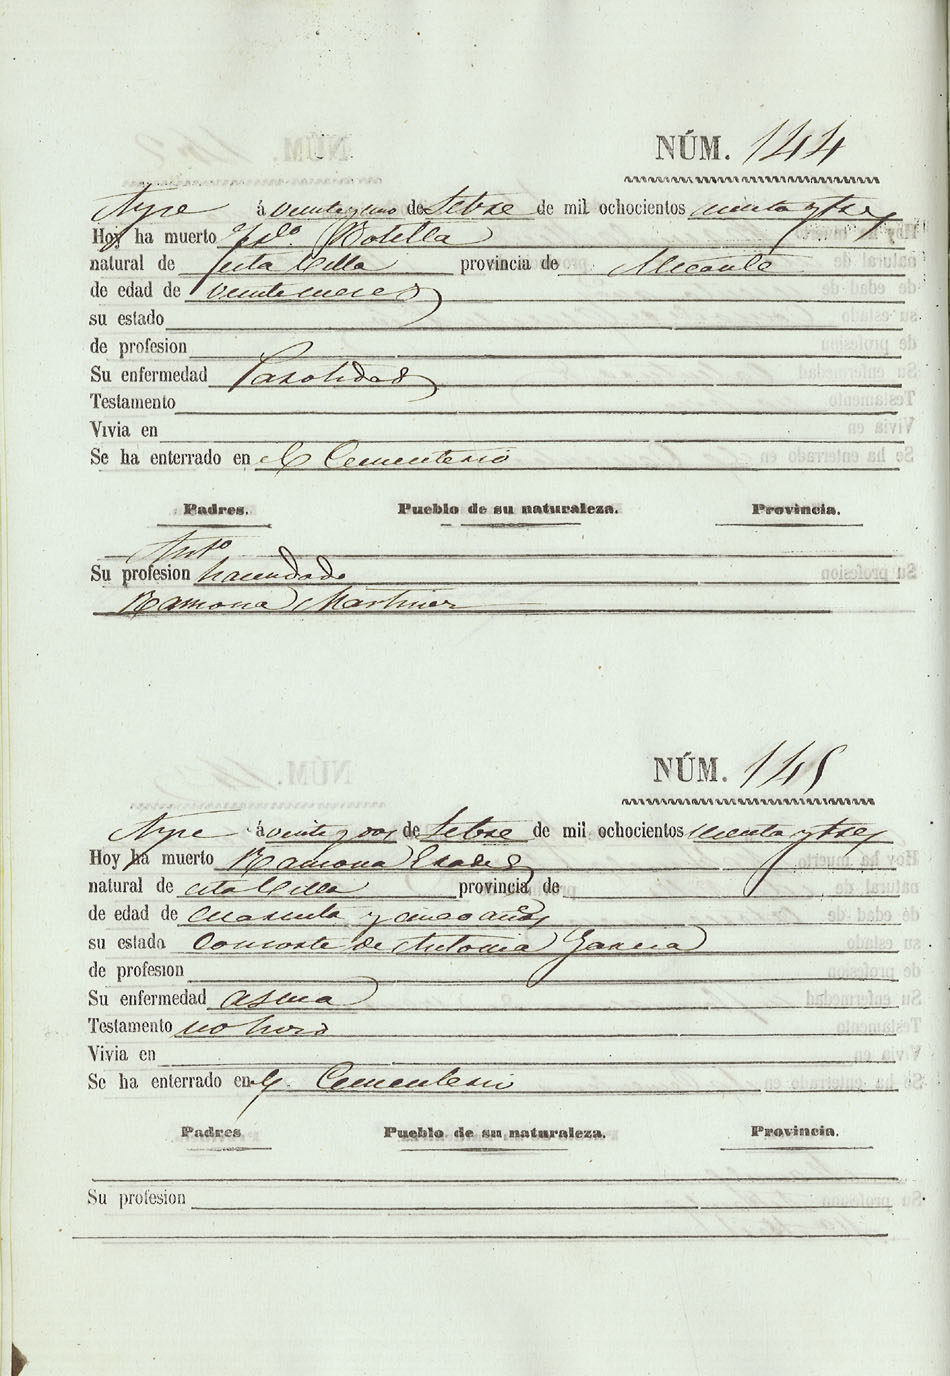 NÚM. 144
Aspe á veinte y uno de Stbre de mil ochocientos y tres
Hoy ha muerto Botella
natural de esta Villa provincia de Alicante
de edad de veinte meses
su estado
de profesion
Su enfermedad
Testamento
Vivia en
Se ha enterrado en el Cementerio
Padres. Pueblo de su naturaleza. Provincia.
Antº
Su profesion hacendado
Ramona Martinez
NÚM. 145
Aspe á veinte y dos de Stbre de mil ochocientos y tres
Hoy ha muerto Ramona
natural de esta Villa provincia de
de edad de cuarenta y cinco años
su estado Consorte de Antonio Garcia
de profesion
Su enfermedad asma
Testamento no hizo
Vivia en
Se ha enterrado en el Cementerio
Padres Pueblo de su naturaleza. Provincia.
Su profesion